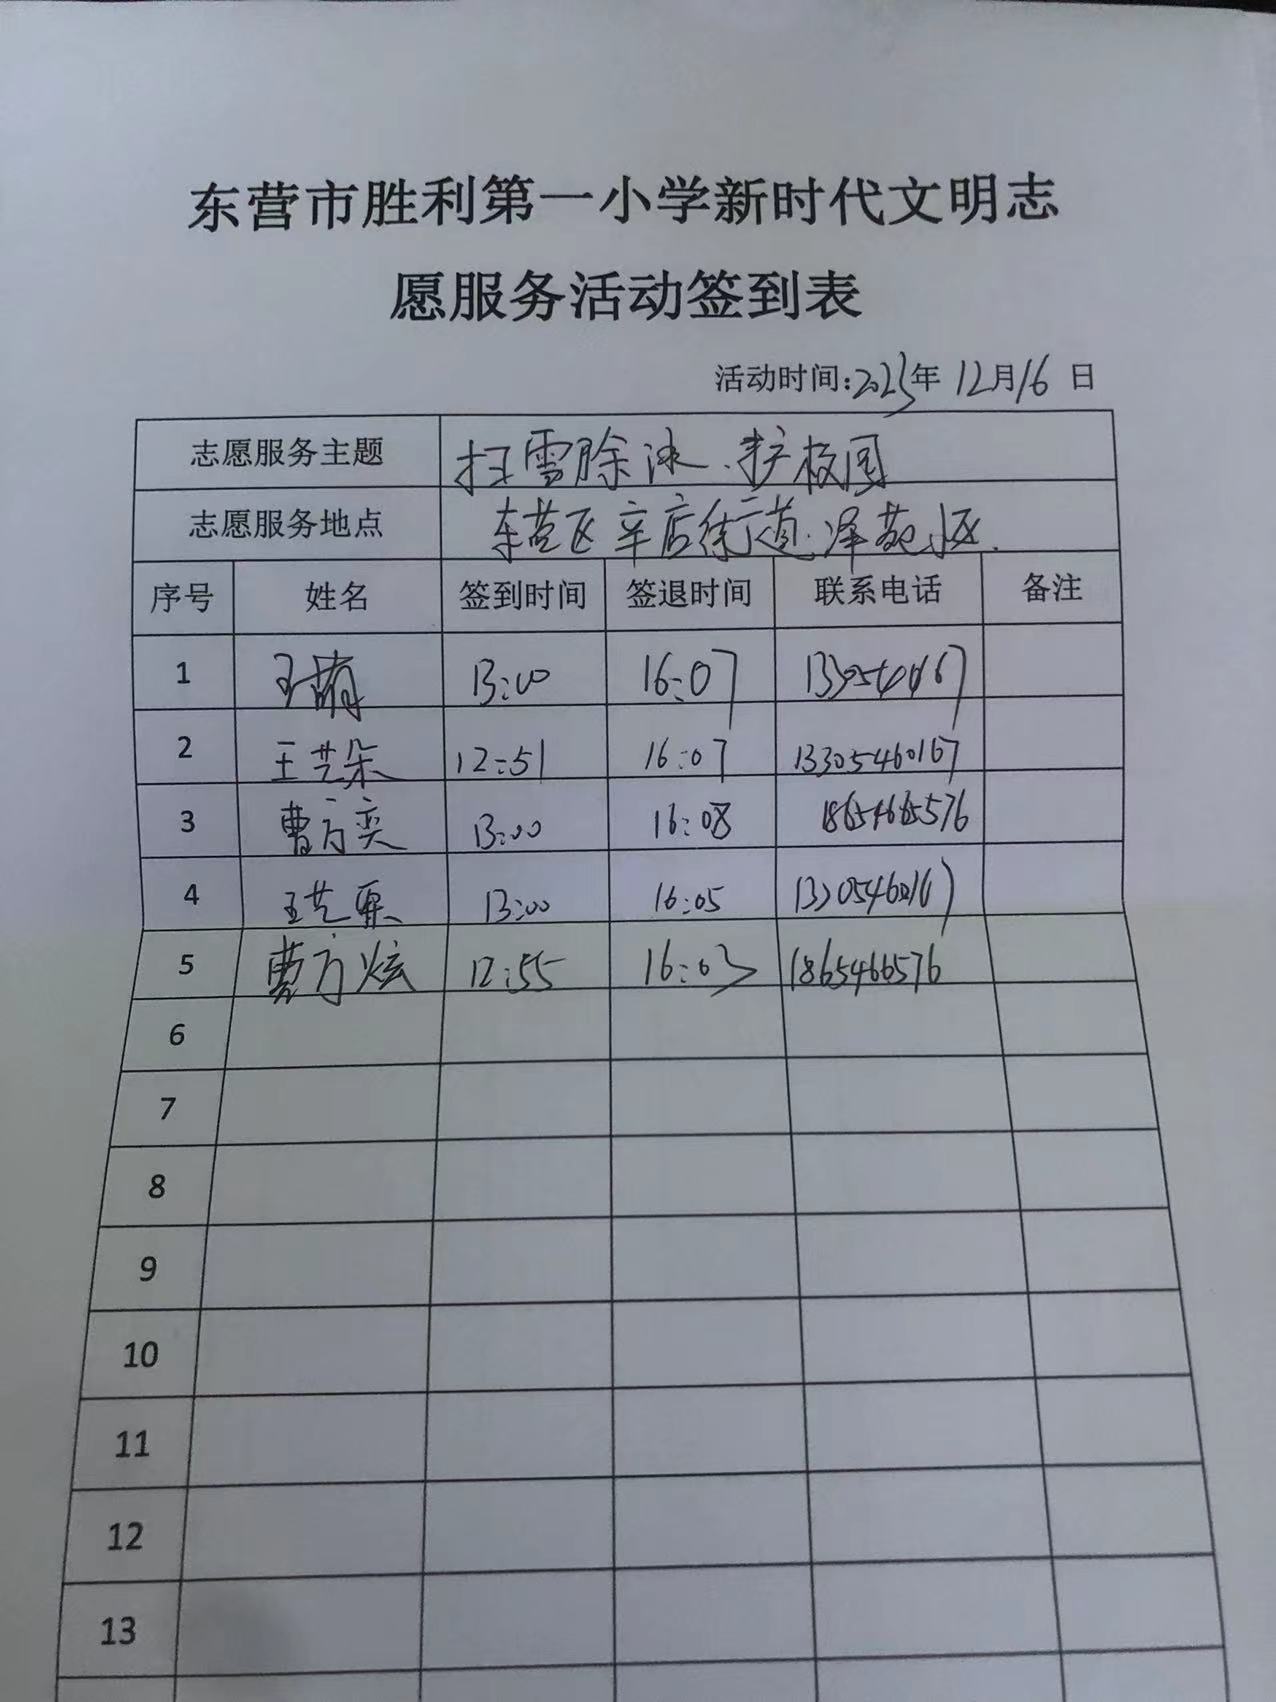 东营市胜利第一小学新时代文明志
愿服务活动签到表
活动时间:2023年12月16日
志愿服务主题 扫雪除冰.护校园
志愿服务地点 东营区辛店街道.泽苑小区.
序号 姓名 签到时间 签退时间 联系电话 备注
1 王萌 13:00 16:07
2 王艺朵 12:51 16:07 13305460167
3 曹方奕 13:00 16:08
4 王艺 13:00 16:05
5 曹方炫 12:55 16:03
6
7
8
9
10
11
12
13